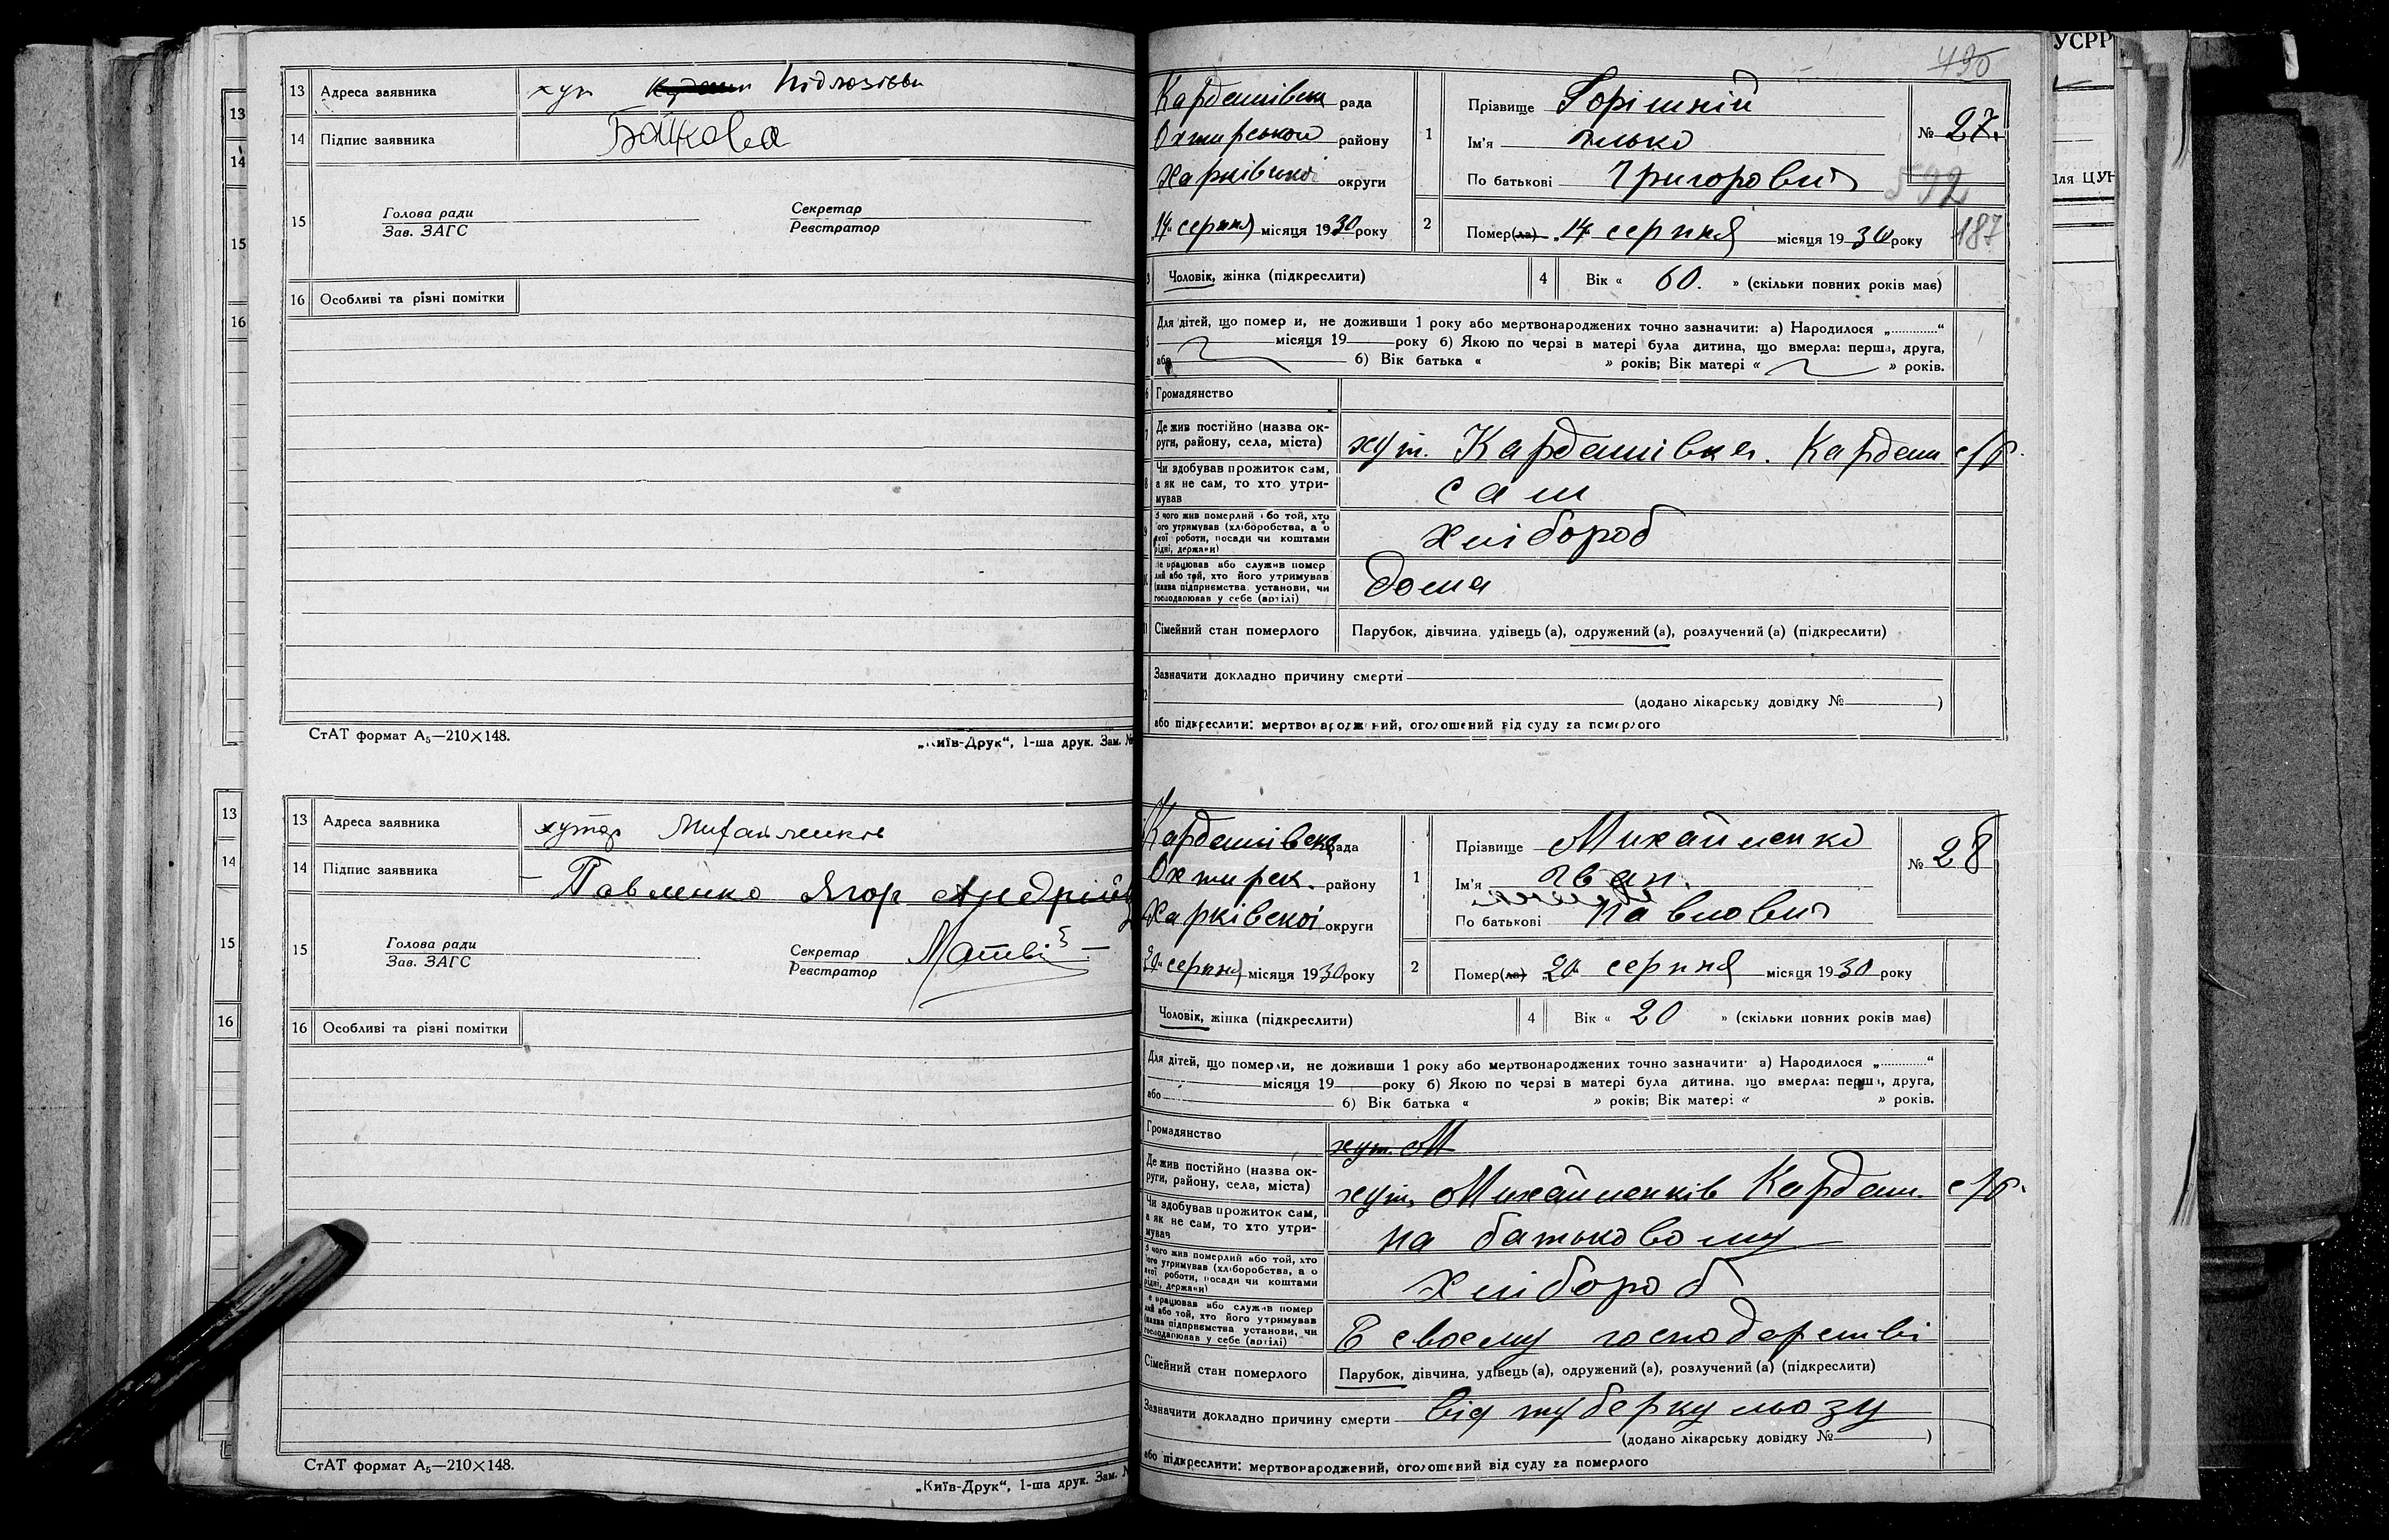 13 Адреса заявника хут Підлозівки
14 Підпис заявника Байкова
15 Голова ради Секретар
Зав. ЗАГС Реєстратор
16 Особливі та різні помітки
СтАТ формат А₅—210×148.
„Київ-Друк“, 1-ша друк. Зам. №
13 Адреса заявника хутор Михайленків
14 Підпис заявника Павленко Ягор Андрійов
15 Голова ради Секретар Матві
Зав. ЗАГС Реєстратор
16 Особливі та різні помітки
СтАТ формат А₅—210×148.
„Київ-Друк“, 1-ша друк. Зам. №
УСРР
490
Кардашівськ рада
Охтирською району
Харківської округи
„14“ серпня місяця 1930 року
1 Прізвище Горішній
Ім'я Ілько
По батькові Григорович
№ 27.
592
2 Помер(ла) „14“ серпня місяця 1930 року
187
3 Чоловік, жінка (підкреслити) 4 Вік « 60. » (скільки повних років має)
Для дітей, що померли, не доживши 1 року або мертвонароджених точно зазначити: а) Народилося „............“
місяця 19 року б) Якою по черзі в матері була дитина, що вмерла: перша, друга,
або б) Вік батька « » років; Вік матері « » років.
6 Громадянство
7 Де жив постійно (назва округи, району, села, міста) хут. Кардашівка. Кардаш с/р.
8 Чи здобував прожиток сам, а як не сам, то хто утримував сам
9 З чого жив померлий або той, хто його утримував (хліборобства, а о якої роботи, посади чи коштами рідні, держави) хлібороб
Де працював або служив померлий або той, хто його утримував (назва підприємства, установи, чи господарював у себе (артілі) дома
11 Сімейний стан померлого Парубок, дівчина, удівець (а), одружений (а), розлучений (а) (підкреслити)
Зазначити докладно причину смерти
(додано лікарську довідку № )
або підкреслити: мертвонароджений, оголошений від суду за померлого
Кардашівськ рада
Охтирск. району
Харківскої округи
„20“ серпня місяця 1930 року
1 Прізвище Михайленко
Ім'я Іван.
По батькові Павлович
№ 28
2 Помер(ла) „20“ серпня місяця 1930 року
Чоловік, жінка (підкреслити) 4 Вік « 20 » (скільки повних років має)
Для дітей, що померли, не доживши 1 року або мертвонароджених точно зазначити: а) Народилося „............“
місяця 19 року б) Якою по черзі в матері була дитина, що вмерла: перша, друга,
або б) Вік батька « » років; Вік матері « » років.
Громадянство хут. М
Де жив постійно (назва округи, району, села, міста) хут. Михайленків Кардаш. с/р.
Чи здобував прожиток сам, а як не сам, то хто утримував на батьковому
З чого жив померлий або той, хто його утримував (хліборобства, а о якої роботи, посади чи коштами рідні, держави) хлібороб
Де працював або служив померлий або той, хто його утримував (назва підприємства, установи, чи господарював у себе (артілі) В своему господарстві
Сімейний стан померлого Парубок, дівчина, удівець (а), одружений (а), розлучений (а) (підкреслити)
Зазначити докладно причину смерти від туберкульозу
(додано лікарську довідку № )
або підкреслити: мертвонароджений, оголошений від суду за померлого